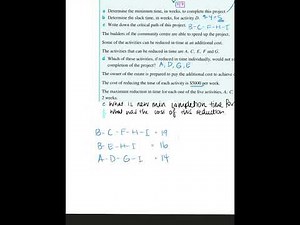 a Determine the minimum time, in weeks, to complete this project.
b Determine the slack time, in weeks, for activity
c Write down the critical path of this project. B-C-F-H-I
The builders of the community centre are able to speed up the project.
Some of the activities can be reduced in time at an additional cost.
The activities that can be reduced in time are A, C, E, F and G.
d Which of these activities, if reduced in time individually, would not
completion of the project? A, D, G, E
The owner of the estate is prepared to pay the additional cost to achieve
The cost of reducing the time of each activity is $5000 per week.
The maximum reduction in time for each one of the five activities, A, C
2 weeks.
e What is new min completion time for
f What was the cost of this reduction.
B-C-F-H-I = 19
B-E-H-I = 16
A-D-G-I = 14